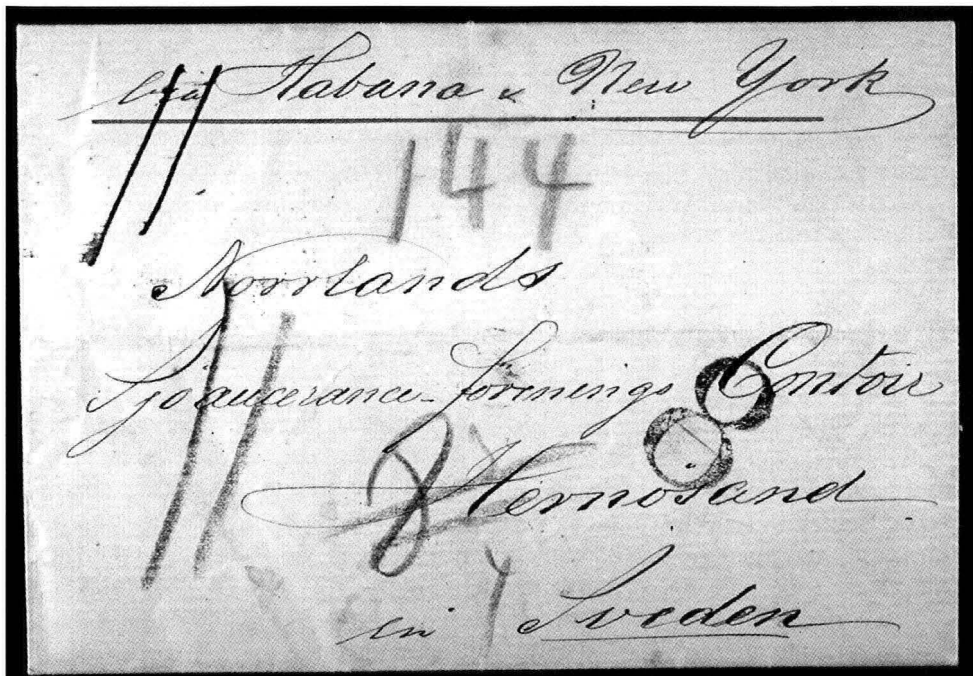 via Habana & New York
144
Norrlands
Sjöassecurance-förenings Contoir
8
Hernösand
in Sveden